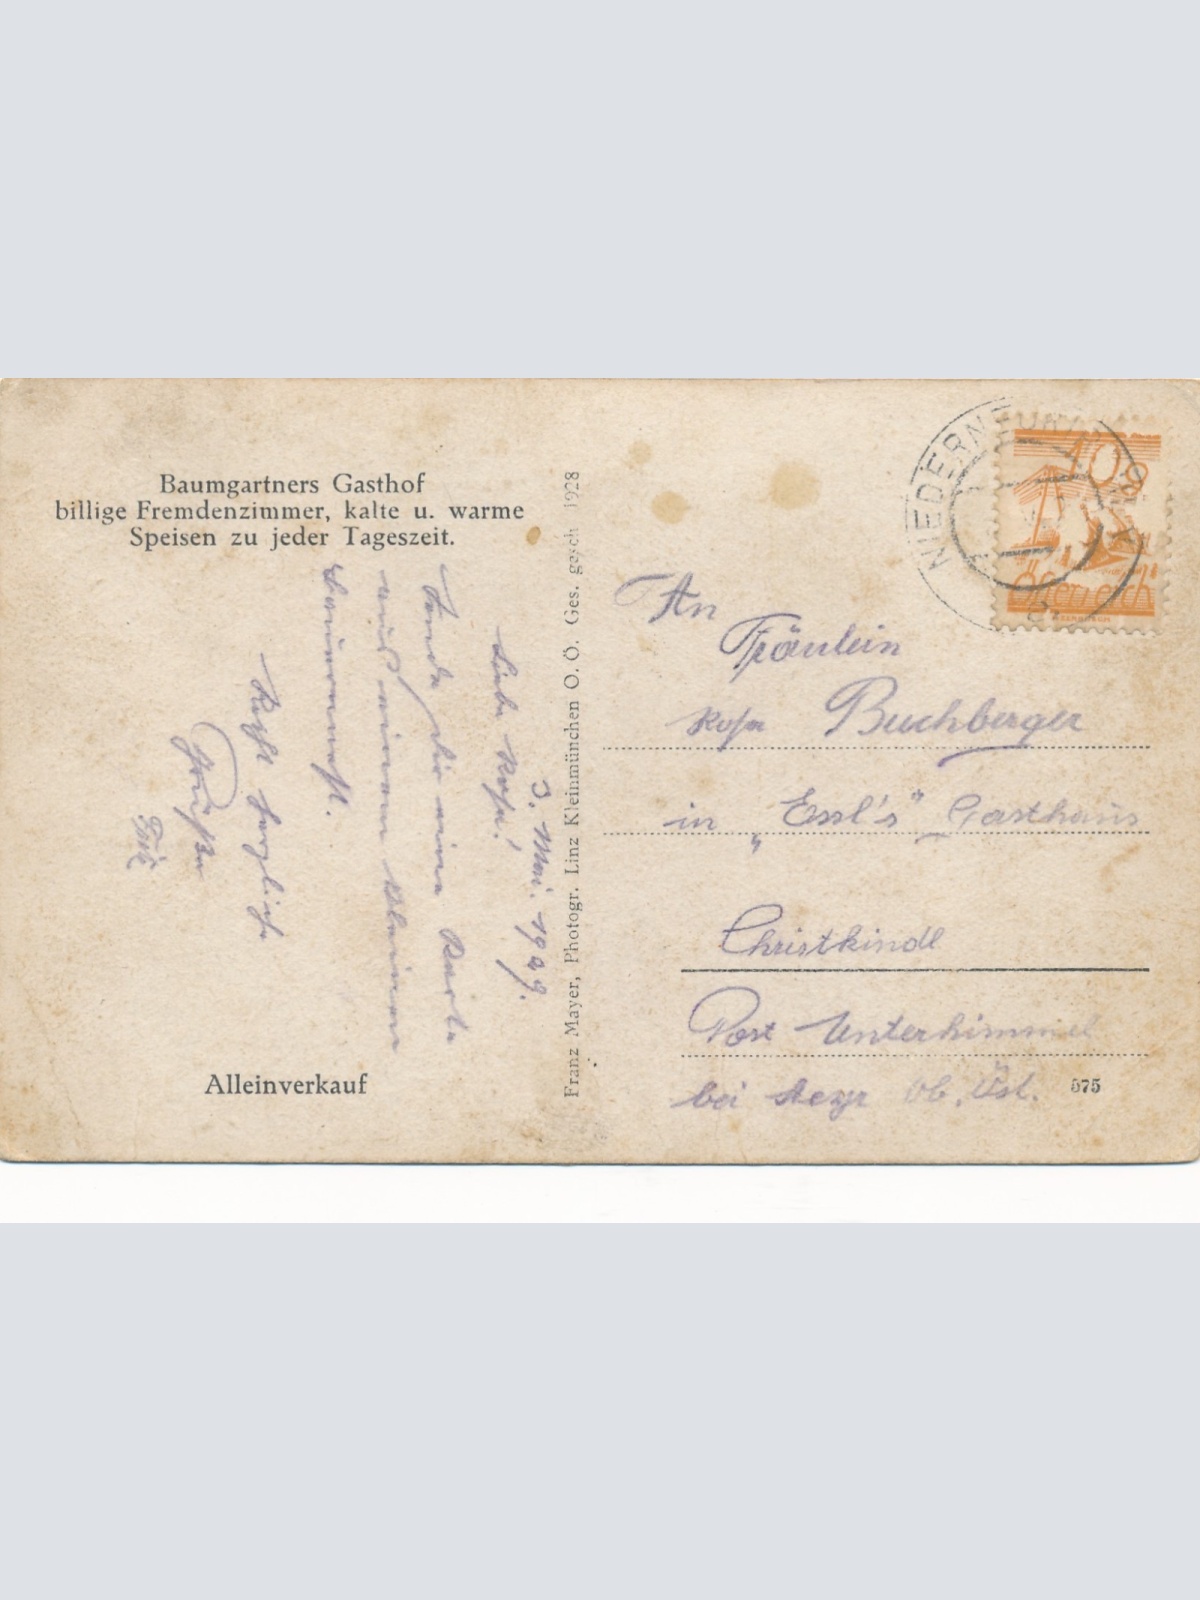 Baumgartners Gasthof
billige Fremdenzimmer, kalte u. warme
Speisen zu jeder Tageszeit.
3. Mai. 1929.
Liebe Rosa!
Sende dir eine Karte
aus meinem kleinen
Bauernnest.
Recht herzliche
Grüße
Alleinverkauf
Franz Mayer, Photogr. Linz Kleinmünchen O. Ö. Ges. gesch 1928
10 g
Österreich
NIEDERNEUK
An
Fräulein
Rosa Buchberger
in „Essl's“ Gasthaus
Christkindl
Post Unterhimmel
bei Steyr Ob. Öst.
575